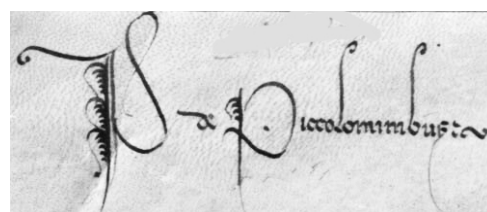 de Piccolominibus